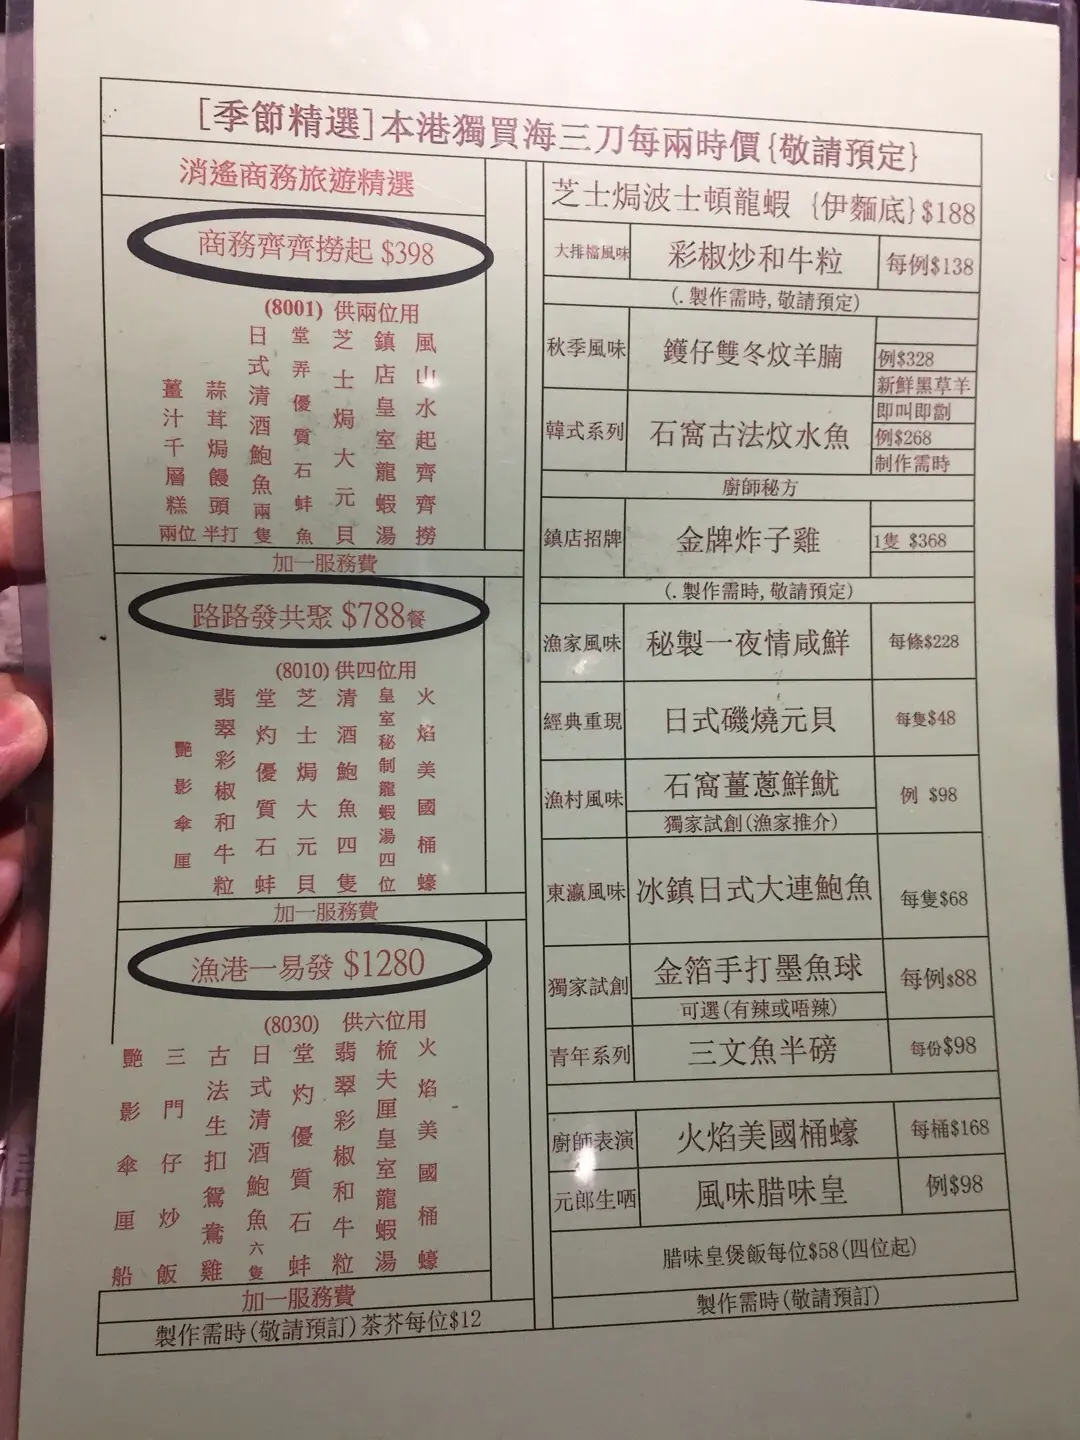 [季節精選]本港獨買海三刀每兩時價{敬請預定}
消遙商務旅遊精選
商務齊齊撈起 $398
(8001) 供兩位用
風山水起齊齊撈
鎮店皇室龍蝦湯
芝士焗大元貝
堂弄優質石蚌魚
日式清酒鮑魚兩隻
蒜茸焗饅頭半打
薑汁千層糕兩位
加一服務費
路路發共聚 $788餐
(8010) 供四位用
火焰美國桶蠔
皇室秘制龍蝦湯四位
清酒鮑魚四隻
芝士焗大元貝
堂灼優質石蚌
翡翠彩椒和牛粒
艷影傘厘
加一服務費
漁港一易發 $1280
(8030) 供六位用
火焰美國桶蠔
梳夫厘皇室龍蝦湯
翡翠彩椒和牛粒
堂灼優質石蚌
日式清酒鮑魚六隻
古法生扣鴛鴦雞
三門仔炒飯
艷影傘厘船
加一服務費
製作需時(敬請預訂)茶芥每位$12
芝士焗波士頓龍蝦 {伊麵底}$188
大排檔風味 彩椒炒和牛粒 每例$138
(.製作需時,敬請預定)
秋季風味 鑊仔雙冬炆羊腩 例$328
新鮮黑草羊
韓式系列 石窩古法炆水魚 即叫即劏
例$268
制作需時
廚師秘方
鎮店招牌 金牌炸子雞 1隻 $368
(.製作需時,敬請預定)
漁家風味 秘製一夜情咸鮮 每條$228
經典重現 日式磯燒元貝 每隻$48
漁村風味 石窩薑蔥鮮魷 例 $98
獨家試創(漁家推介)
東瀛風味 冰鎮日式大連鮑魚 每隻$68
獨家試創 金箔手打墨魚球 每例$88
可選(有辣或唔辣)
青年系列 三文魚半磅 每份$98
廚師表演 火焰美國桶蠔 每桶$168
元郎生晒 風味腊味皇 例$98
腊味皇煲飯每位$58(四位起)
製作需時(敬請預訂)